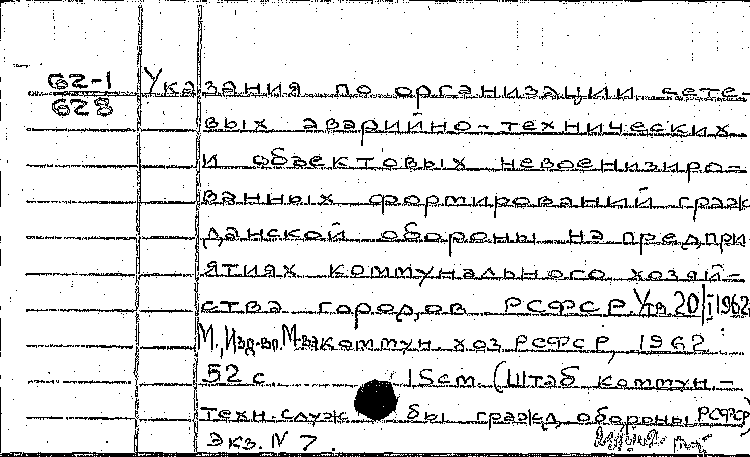 62-1 Указания по организации сете-
628
вых аварийно-технических
и объектовых невоенизиро-
ванных формирований граж
данской обороны на предпри
ятиях коммунального хозяй-
ства городов РСФСР. Утв. 20/I 1962
М., Изд-во М-ва коммун. хоз. РСФСР, 1962
52 с. 15 см. (Штаб коммун.-
техн. служ бы гражд. обороны РСФСР)
Экз. N 7.